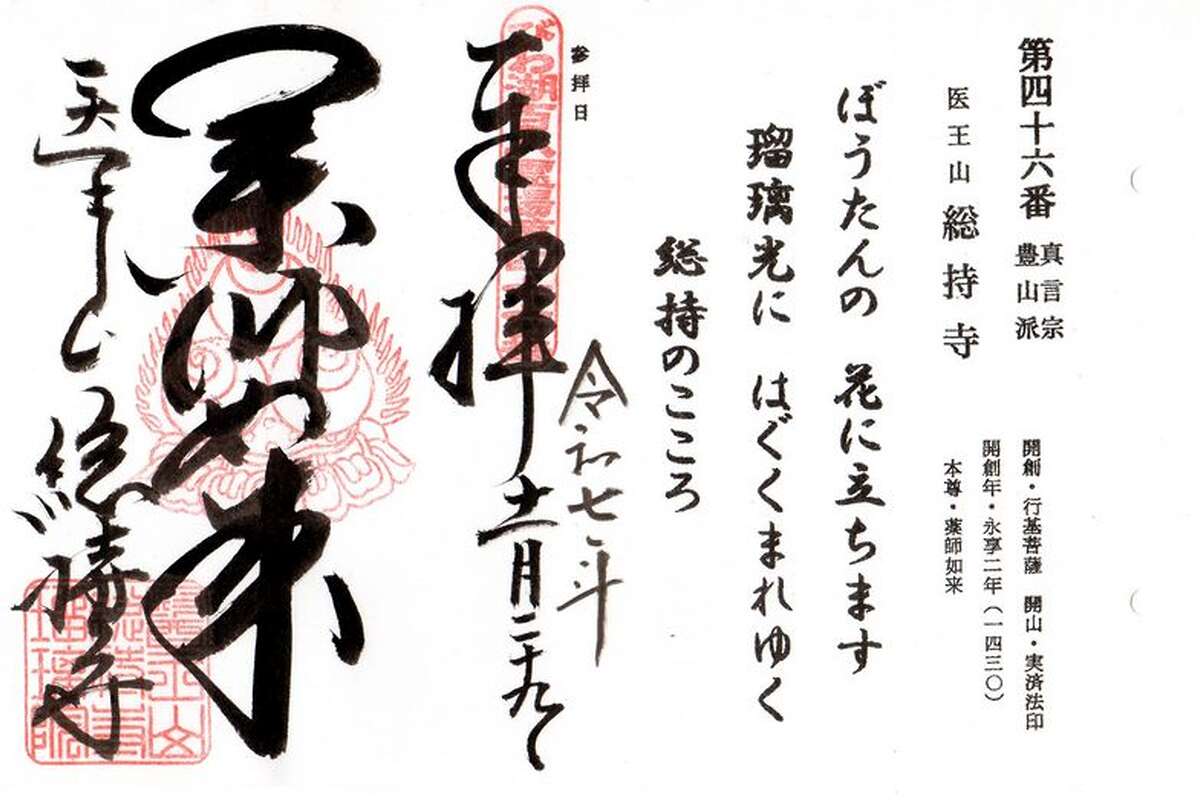 第四十六番 真言宗 豊山派
医王山 総持寺
開創・行基菩薩 開山・実済法印
開創年・永享二年(一四三〇)
本尊・薬師如来
ぼうたんの 花に立ちます
瑠璃光に はぐくまれゆく
総持のこころ
参拝日
令和七年
十一月二十九日
奉拝
びわ湖百八霊場
薬師如来
医王山
総持寺